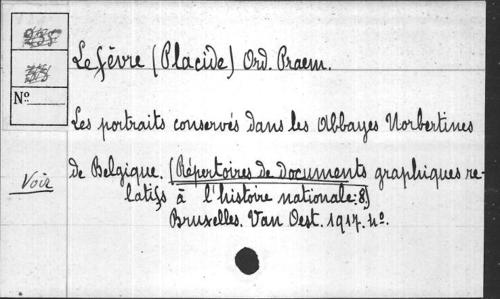 Lefèvre (Placide) Ord. Praem.
Nº
Les portraits conservés dans les Abbayes Norbertines
de Belgique. (Répertoires de documents graphiques re-
Voir
latifs à l'histoire nationale: 8)
Bruxelles. Van Oest. 1917. 4º.